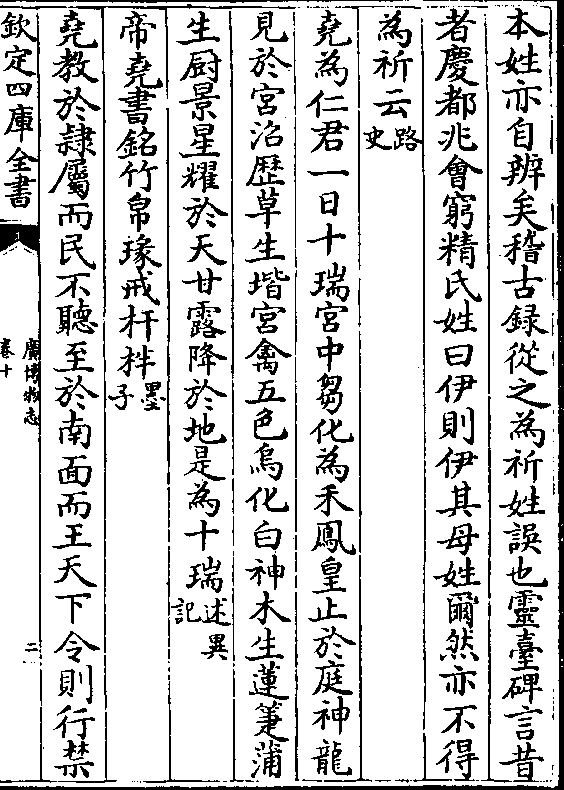 本姓亦自辨矣稽古録從之為祈姓誤也靈臺碑言昔
者慶都兆會窮精氏姓曰伊則伊其母姓爾然亦不得
為祈云路史
堯為仁君一日十瑞宮中芻化為禾鳳皇止於庭神龍
見於宮沼歴草生堦宮禽五色烏化白神木生蓮箑蒲
生厨景星耀於天甘露降於地是為十瑞述異記
帝堯書銘竹帛瑑戒杆柈墨子
堯教於隷屬而民不聽至於南面而王天下令則行禁
欽定四庫全書
廣博物志
卷十
二